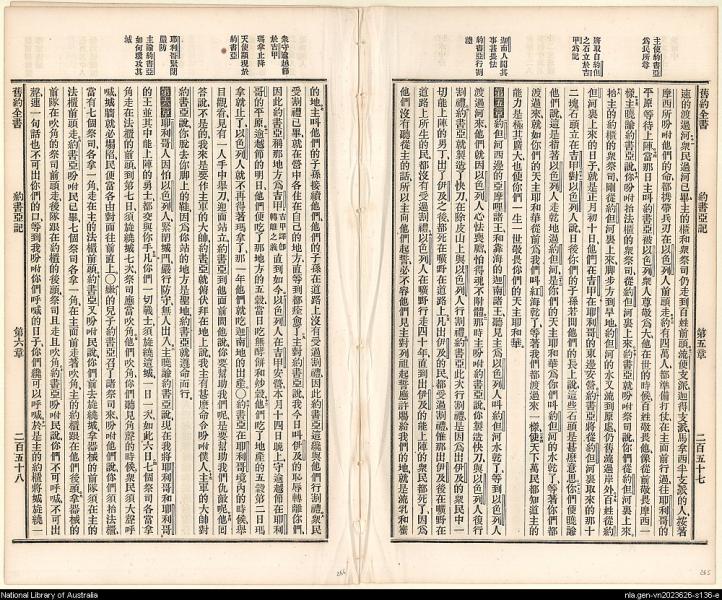 主使約書亞
爲民所尊
將取自約但
之石立於吉
甲爲記
迦南人聞其
事甚畏怯
約書亞行割
禮
舊約全書
約書亞記
第五章
二百五十七
速的渡過河衆民過河已畢主的櫃和衆祭司仍走到百姓前頭流便支派迦得支派馬拿西半支派的人按著
摩西所吩咐他們的命都攜帶兵刃在以色列人前頭走約有四萬人都準備打仗在主面前行過往耶利哥的
平原等待上陣當那日主叫約書亞被以色列衆人尊敬爲大他在世的時候百姓敬畏他像從前敬畏摩西一
樣主曉諭約書亞說你吩咐抬法櫃的衆祭司從約但河裏上來約書亞就吩咐祭司說你們從約但河裏上來
抬主的約櫃的衆祭司剛從約但河裏上來腳步方到旱地約但河的水又流到原處仍舊流過岸外百姓從約
但河裏上來的日子就是正月初十日他們在吉甲在耶利哥的東邊安營約書亞將從約但河裏取來的那十
二塊石頭立在吉甲對以色列人說日後你們的子孫若問他們的長上說這些石頭是甚麼意思你們便曉諭
他們說這是指著以色列人走乾地過約但河是你們的天主耶和華爲你們叫約但河的水乾了等著你們都
渡過來就如你們的天主耶和華從前爲我們叫紅海乾了等著我們都渡過來一樣使天下萬民都知道主的
能力是極其廣大也使你們一生一世敬畏你們的天主耶和華
第五章約但河西邊的亞摩哩諸王和靠海的迦南諸王聽見主爲以色列人叫約但河水乾了等到以色列人
渡過河來他們因爲以色列人心怯喪膽怕得魂不附體那時主吩咐約書亞說你製造快刀與以色列人復行
割禮約書亞就製造了快刀在除皮山上與以色列人行割禮約書亞此次行割禮是因爲出伊及的衆民中一
切能上陣的男丁出了伊及之後都死在曠野在道路上凡出伊及的民都受過割禮惟那出伊及後在曠野在
道路上所生的民都沒有受過割禮以色列人在曠野行走四十年直到出伊及的能上陣的衆民都死了因爲
他們沒有聽從主的話所以主向他們起誓必不容他們見主對列祖起誓應許賜給我們的地就是流乳和蜜
衆守逾越節
於吉甲
瑪拿止降
天使顯現於
約書亞
耶利哥緊閉
嚴防
主諭約書亞
如何環攻其
城
的地主叫他們的子孫接續他們他們的子孫在道路上沒有受過割禮因此約書亞這纔與他們行割禮衆民
受割禮已畢就在營中各住在自己的地方直等到都痊愈了主對約書亞說我今日叫伊及的恥辱轉離你們
因此約書亞稱那地方爲吉甲吉甲譯卽轉離之義直到如今以色列人在吉甲安營本月十四日晚上守逾越節在耶利
哥的平原逾越節的明日他們便吃了那地方的五穀當日吃無酵餅和炒穀他們吃了地產的五穀第二日瑪
拿就止了以色列人就不再得著瑪拿了那一年他們就吃迦南地的出產〇約書亞在耶利哥境內的時候舉
目觀看見有一人手中舉刀迎面站立約書亞到他面前問他說你要幫助我們呢是要幫助我們仇敵呢他囘
答說不是的我來是要作主軍的大帥約書亞就俯伏拜在地上說我主有甚麼命令吩咐僕人主軍的大帥對
約書亞說你脫去你脚上的鞋因爲你站的地方是聖地約書亞就遵命而行
第六章耶利哥人因怕以色列人緊閉城門嚴行防守無人出入主曉諭約書亞說現在我將耶利哥和耶利哥
的王並其中能上陣的勇士都交與你手凡你們一切戰士須旋繞這城一日一次如此六日七個祭司各當拿
角走在法櫃的前頭到第七日須旋繞城七次祭司應當吹角他們吹角你們聽見角聲的時候衆民須大聲呼
喊城牆就必塌陷民便當各由對面往前直上〇嫩的兒子約書亞召了諸祭司來吩咐他們說你們須抬法櫃
當有七個祭司各拿一角走在主的法櫃前頭約書亞又吩咐民說你們前去旋繞城拿器械的前隊須在主的
法櫃前頭走約書亞吩咐民已畢七個祭司各拿一角在主前走著吹角主的約櫃跟在他們後頭拿器械的
前隊在吹角的祭司前頭走後隊跟在約櫃的後頭祭司且走且吹角約書亞吩咐民說你們不可呼喊不可出
聲連一句話也不可出你們的口等到我吩咐你們呼喊的日子你們纔可以呼喊於是主的約櫃將城旋繞一
舊約全書
約書亞記
第六章
二百五十八
264
265
National Library of Australia
nla.gen-vn2023626-s136-e